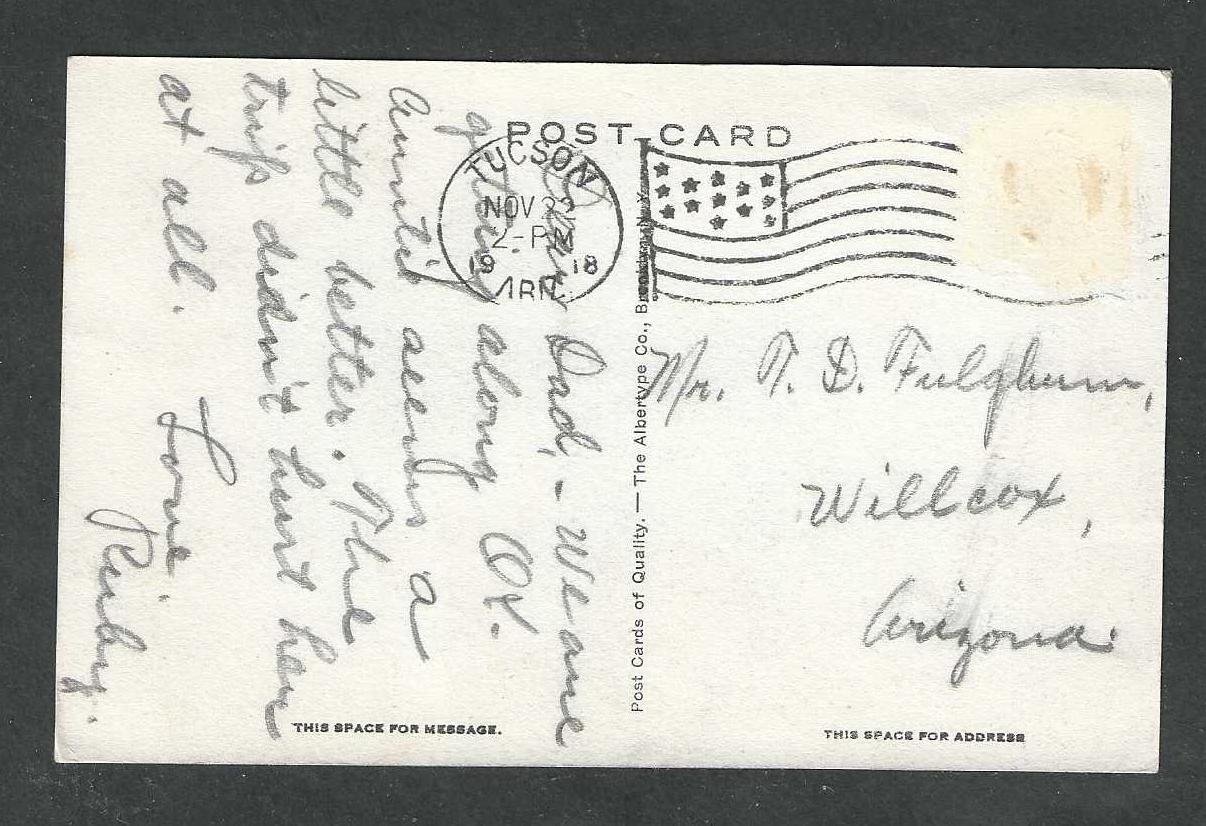 POST CARD
TUCSON
NOV 22
2-PM
19 18
ARIZ.
Dear Dad, - We are
getting along OK.
Auntie seems a
little better. The
trip didn't hurt her
at all. Love
Ruby.
Post Cards of Quality. — The Albertype Co., Brooklyn, N. Y.
Mr. T. D. Fulghum,
Willcox,
Arizona.
THIS SPACE FOR MESSAGE.
THIS SPACE FOR ADDRESS